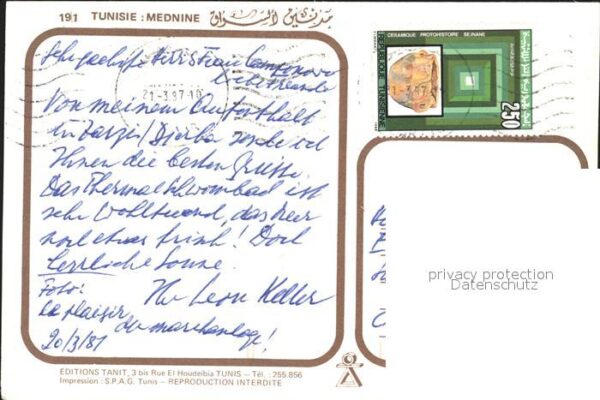 191 TUNISIE : MEDNINE مدنين السواق
Sehr geehrte Herr & Frau
21-3.87-10
Von meinem Aufenthalt
in Zarzis/Djerba sende ich
Ihnen die besten Grüsse.
Das Thermalschwimbad ist
sehr wohltuend, das Meer
noch etwas frisch! Doch
herrliche Sonne.
Foto: Ihr Leon Keller
le plaisir
20/3/87
CERAMIQUE PROTOHISTOIRE SEJNANE
REPUBLIQUE TUNISIENNE
250
privacy protection
Datenschutz
EDITIONS TANIT, 3 bis Rue El Houdeibia TUNIS - Tél. : 255.856
Impression : S.P.A.G. Tunis - REPRODUCTION INTERDITE